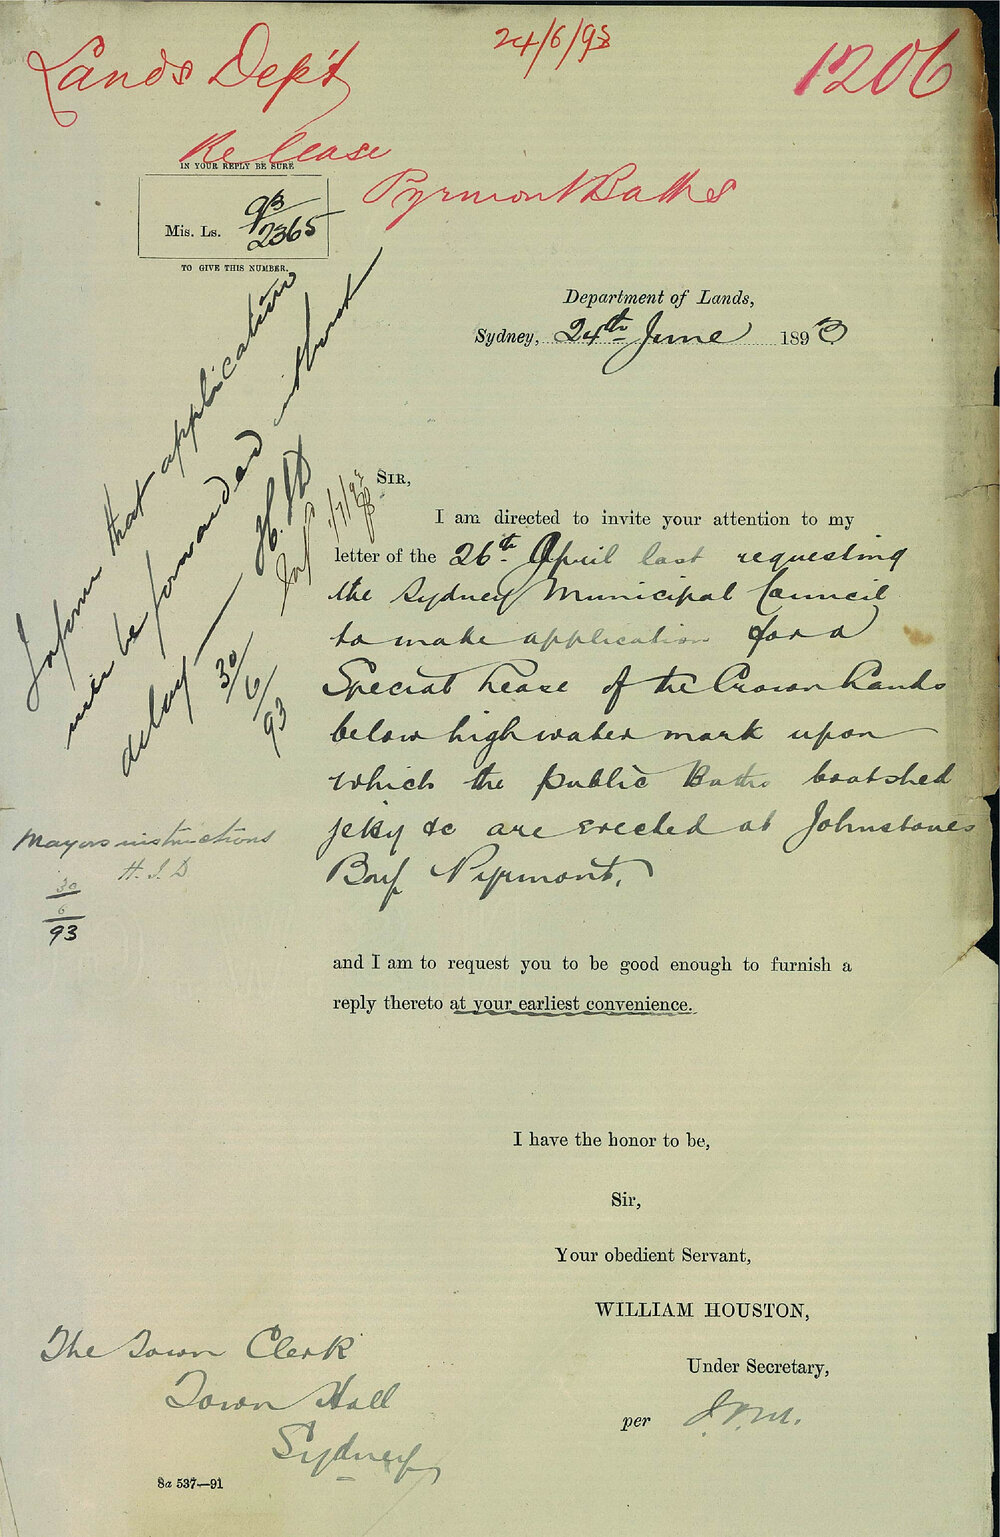 24/6/93
1206
Lands Dep't
Re lease
Pyrmont Baths
IN YOUR REPLY BE SURE
Mis. Ls. 93/2365
TO GIVE THIS NUMBER.
Department of Lands,
Sydney, 24th June 1893
Inform that application
will be forwarded without
delay — H.S.D
30/6/93
Inf 1/7/93
SIR,
I am directed to invite your attention to my
letter of the 26th. April last requesting
the Sydney Municipal Council
to make application for a
Special Lease of the Crown Lands
below high water mark upon
which the public Baths boatshed
jetty &c are erected at Johnstones
Bay Pyrmont.
Mayors instructions
H.S.D
30/6/93
and I am to request you to be good enough to furnish a
reply thereto at your earliest convenience.
I have the honor to be,
Sir,
Your obedient Servant,
WILLIAM HOUSTON,
Under Secretary,
per
The Town Clerk
Town Hall
Sydney
8a 537—91